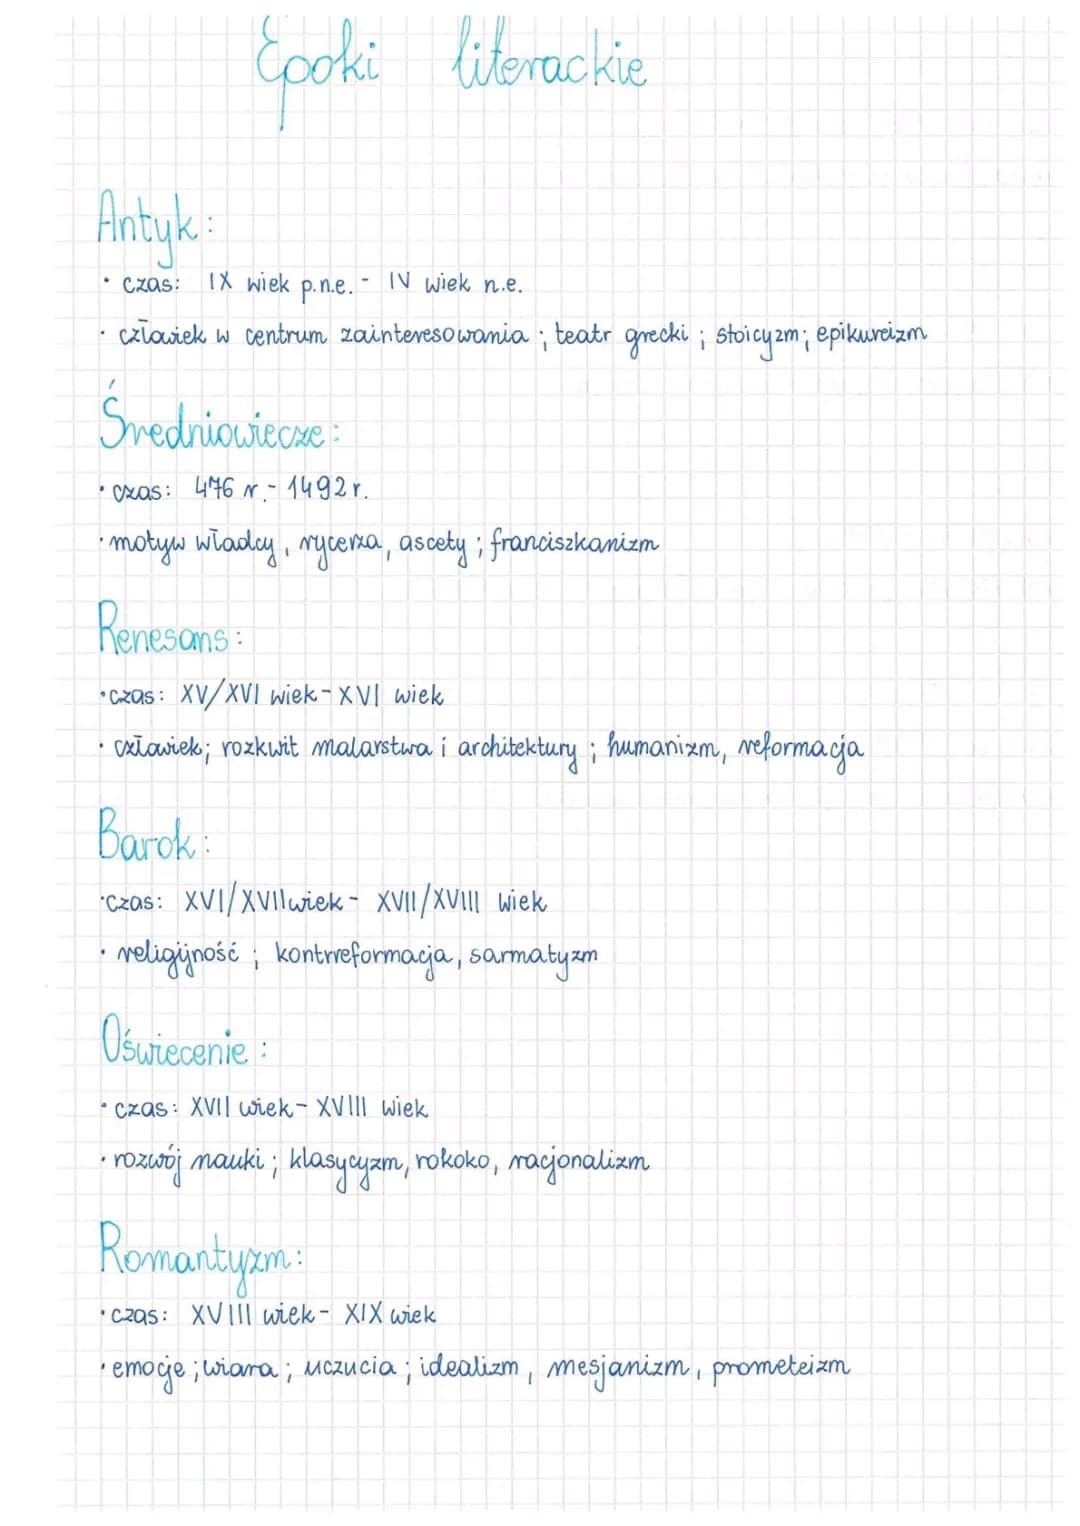 Epoki literackie
Antyk:
• czas: IX wiek p.n.e. - IV wiek n.e.
• człowiek w centrum zainteresowania ; teatr grecki ; stoicyzm; epikureizm
Średniowiecze:
• czas: 476 r. - 1492 r.
• motyw władcy, rycerza, ascety ; franciszkanizm
Renesans:
• czas: XV/XVI wiek - XVI wiek
• człowiek; rozkwit malarstwa i architektury ; humanizm, reformacja
Barok:
• czas: XVI/XVII wiek - XVII/XVIII wiek
• religijność ; kontrreformacja, sarmatyzm
Oświecenie :
• czas: XVII wiek - XVIII wiek
• rozwój nauki ; klasycyzm, rokoko, racjonalizm
Romantyzm:
• czas: XVIII wiek - XIX wiek
• emocje ; wiara ; uczucia ; idealizm, mesjanizm, prometeizm